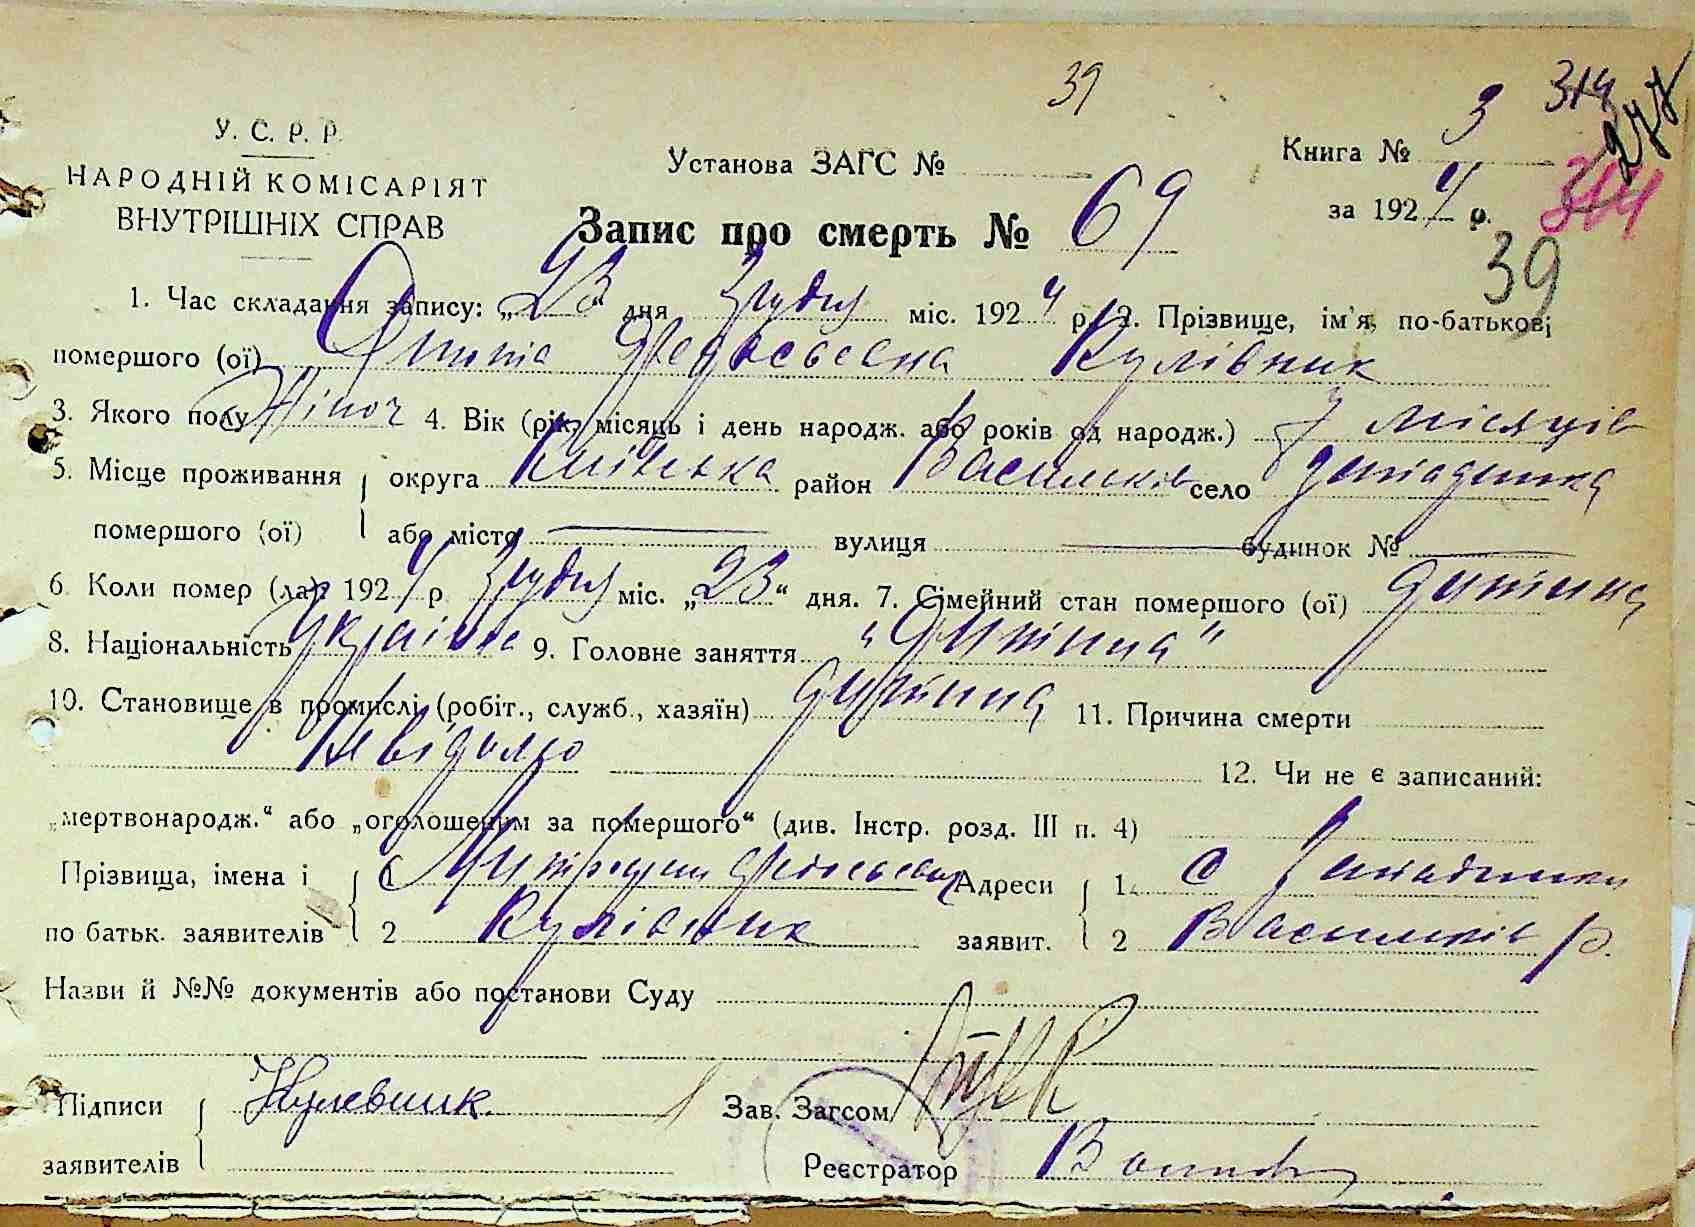 39
314
277
У. С. Р. Р.
НАРОДНІЙ КОМІСАРІЯТ
ВНУТРІШНІХ СПРАВ
Установа ЗАГС №
Книга № 3
за 1924 р.
314
39
Запис про смерть № 69
1. Час складання запису: „23" дня Грудня міс. 1924 р. 2. Прізвище, ім'я, по-батькові
помершого (ої) Федосьевна Кулівник
3. Якого полу Жіноч 4. Вік (рік, місяць і день народж. або років од народж.) 7 місяців
5. Місце проживання округа Київська район Васильків село
помершого (ої) або місто вулиця будинок №
6. Коли помер (ла) 1924 р. Грудня міс. „23" дня. 7. Сімейний стан помершого (ої) дитина
8. Національність Українка 9. Головне заняття „Дитина"
10. Становище в промислі (робіт., служб., хазяїн) дитина 11. Причина смерти
Невідомо 12. Чи не є записаний:
„мертвонародж." або „оголошеним за помершого" (див. Інстр. розд. III п. 4)
Прізвища, імена і 1 Адреси 1. С
по батьк. заявителів 2 Кулівник заявит. 2 Васильків р.
Назви й №№ документів або постанови Суду
Підписи Кулевник. Зав. Загсом
заявителів Реєстратор